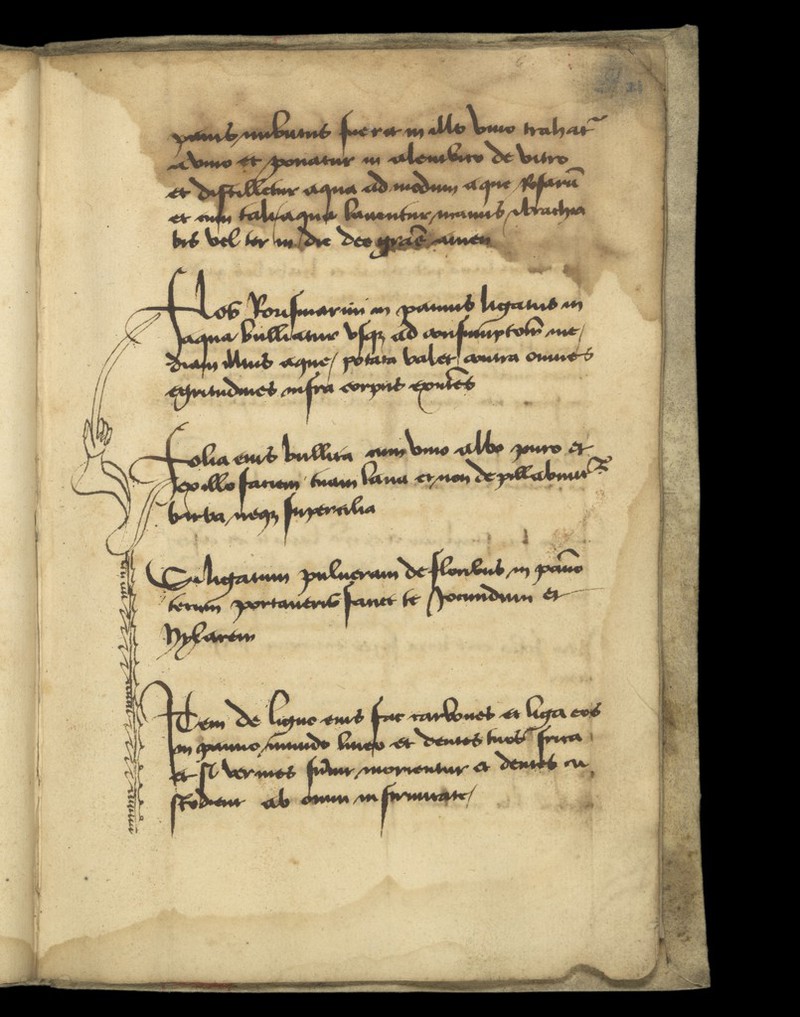 panis imbutus fuerit in illo vino trahat~
a vino et ponatur in alembico de vitro
et distilletur aqua ad modum aque Rosarū
et cum tali aqua lauentur manus brachia
bis vel ter in die deo grās amen
Flos Rorismarini in pannis ligatus in
aqua bulliatur vsqz ad consumptoēm me/
diam illius aque/ potata valet contra omnes
egritudines infra corpus exntēs
Folia eius bullita cum vino albo puro et
ex illo faciem tuam laua et non depillabuntr
barba neqz supercilia
Si ligatum puluerem de floribus in panno
portaueris faciet te Jocundum et
hylarem
Item de ligno eius fac carbones et liga eos
in panno mundo lineo et dentes tuos frica
et si vermes morientur et dentes cu
stodient ab omni infirmitate/